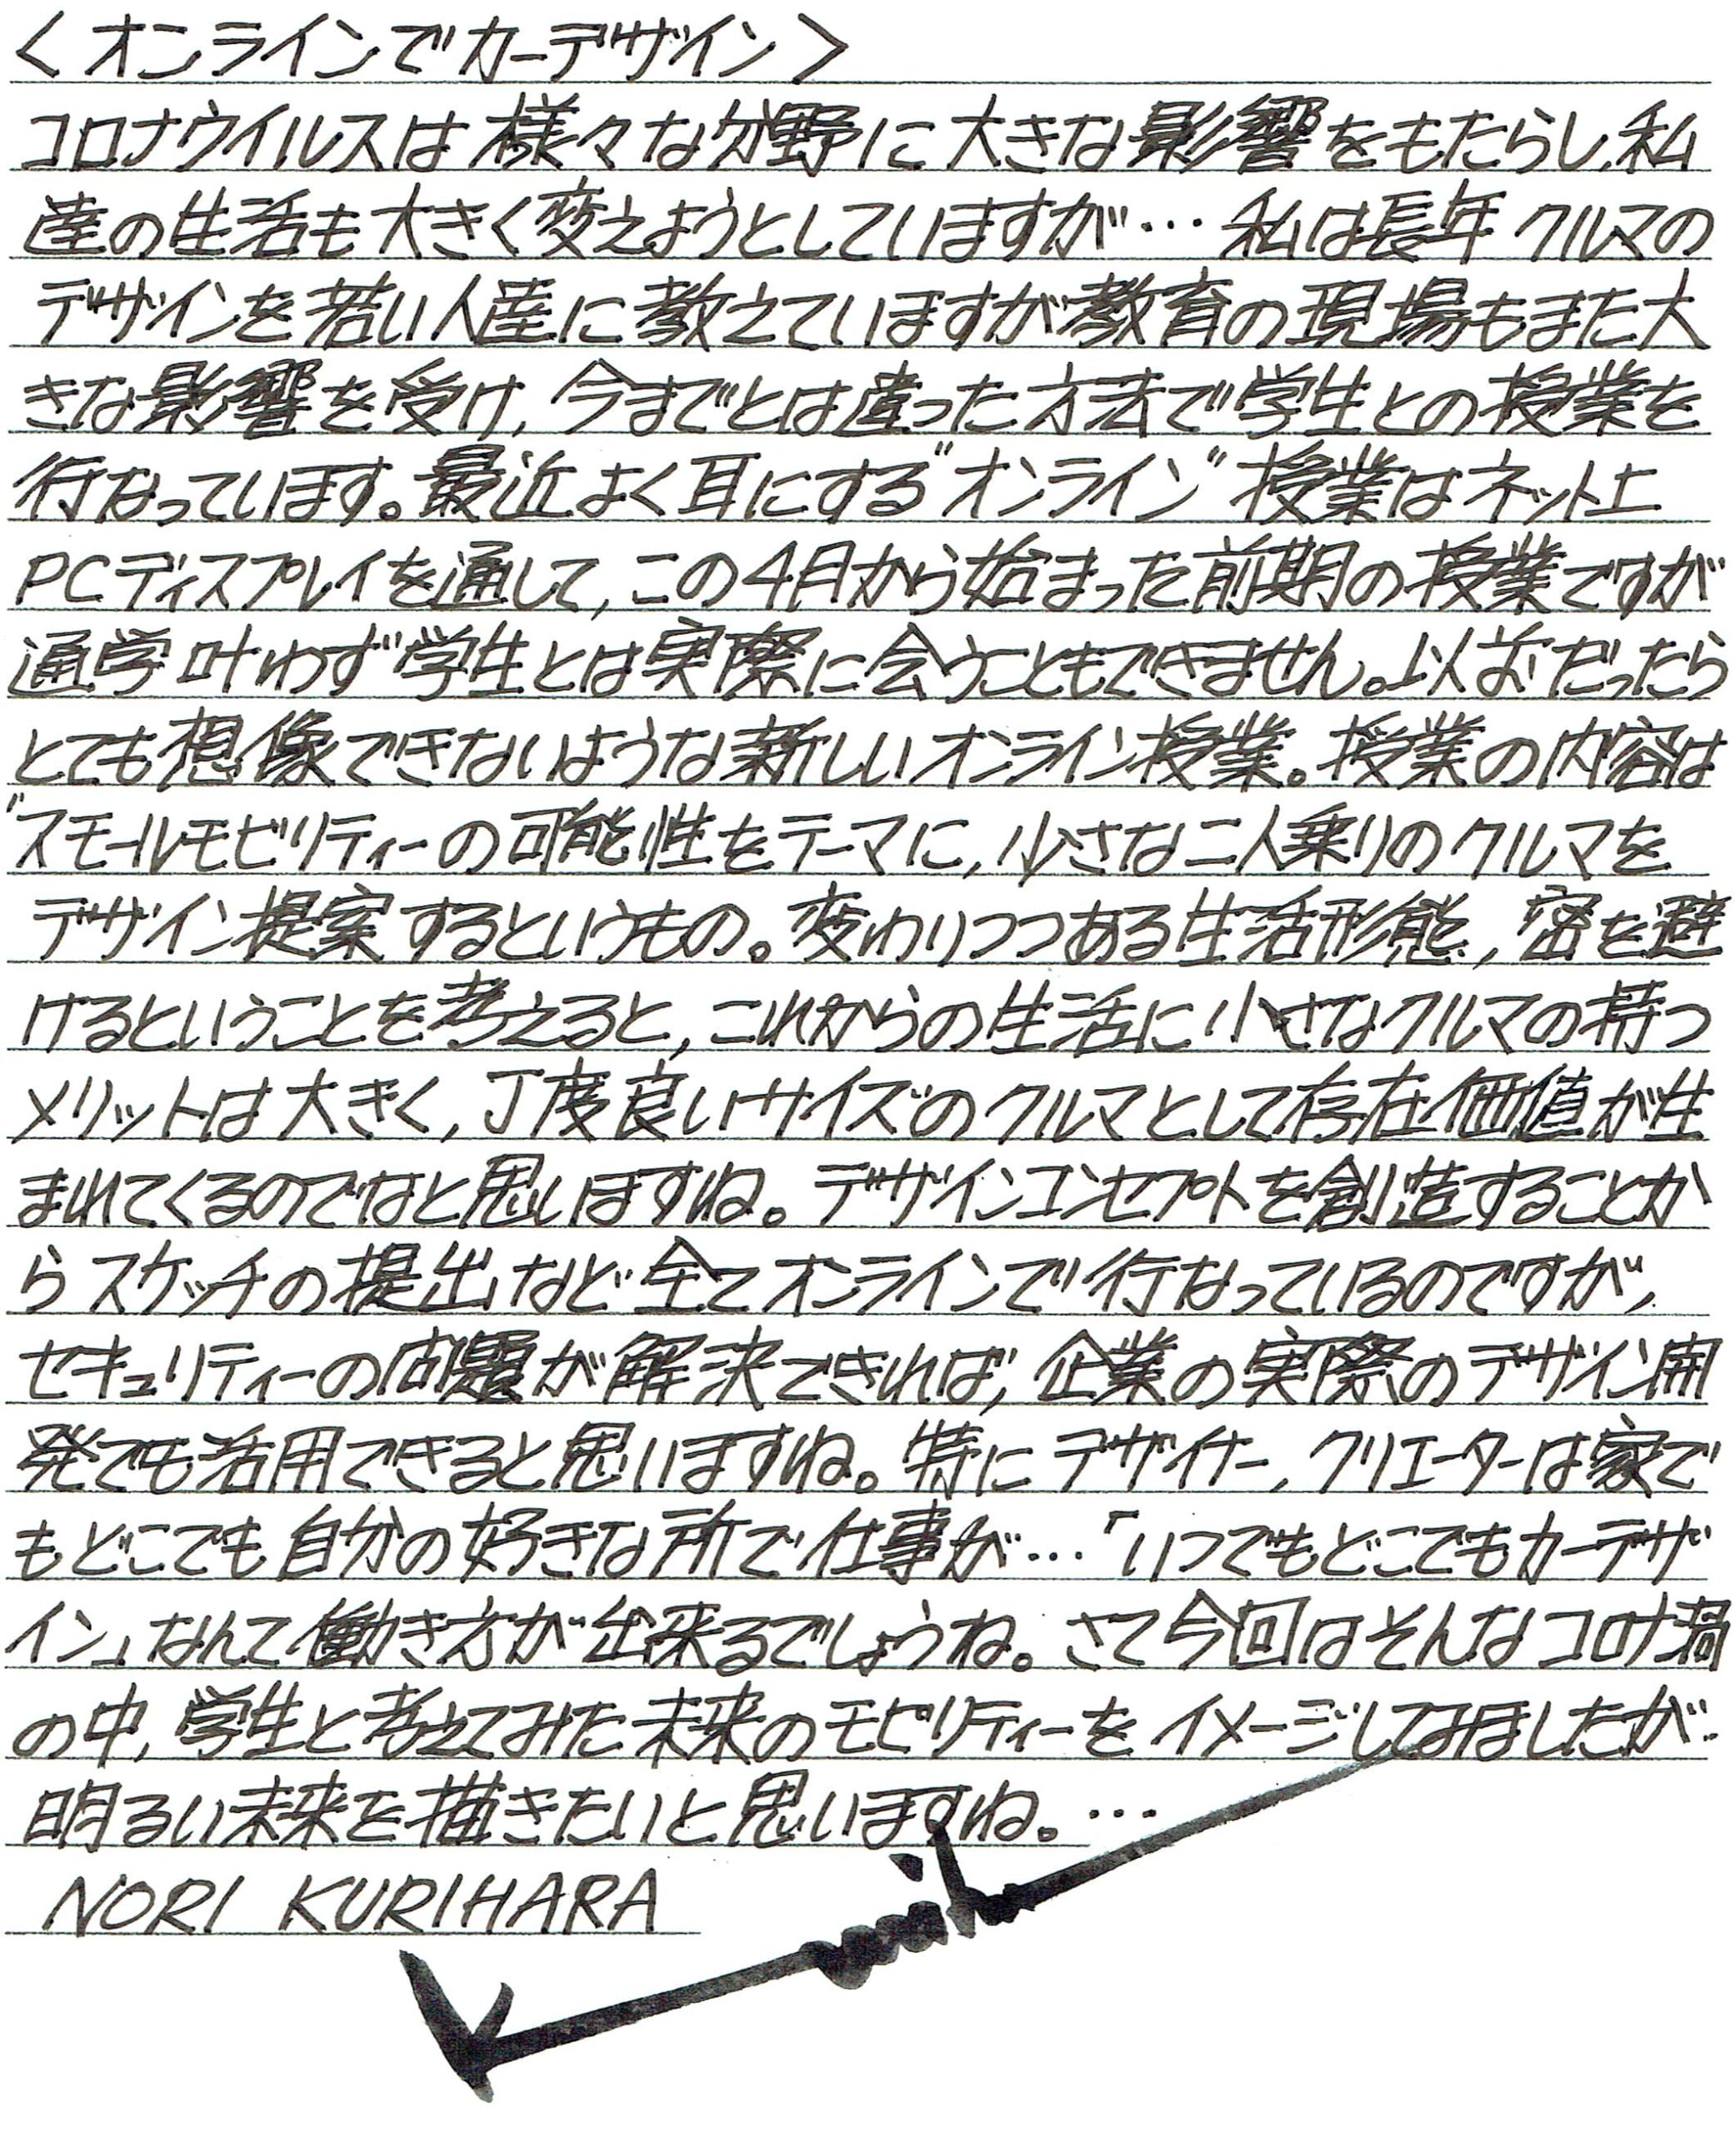 ＜オンラインでカーデザイン＞
コロナウイルスは様々な分野に大きな影響をもたらし、私
達の生活も大きく変えようとしていますが…私は長年クルマの
デザインを若い人達に教えていますが教育の現場もまた大
きな影響を受け、今までとは違った方法で学生との授業を
行なっています。最近よく耳にする"オンライン"授業はネット上
PCディスプレイを通して、この4月から始まった前期の授業ですが
通学叶わず学生とは実際に会うこともできません。以前だったら
とても想像できないような新しいオンライン授業。授業の内容は
"スモールモビリティーの可能性をテーマに、小さな二人乗りのクルマを
デザイン提案するというもの。変わりつつある生活形態、密を避
けるということを考えると、これからの生活に小さなクルマの持つ
メリットは大きく、丁度良いサイズのクルマとして存在価値が生
まれてくるのでなと思いますね。デザインコンセプトを創造することか
らスケッチの提出など全てオンラインで行なっているのですが、
セキュリティーの問題が解決できれば、企業の実際のデザイン開
発でも活用できると思いますね。特にデザイナー、クリエーターは家で
もどこでも自分の好きな所で仕事が…「いつでもどこでもカーデザ
イン」なんて働き方が出来るでしょうね。さて今回はそんなコロナ渦
の中、学生と考えてみた未来のモビリティーをイメージしてみましたが…
明るい未来を描きたいと思いますね。…
NORI KURIHARA